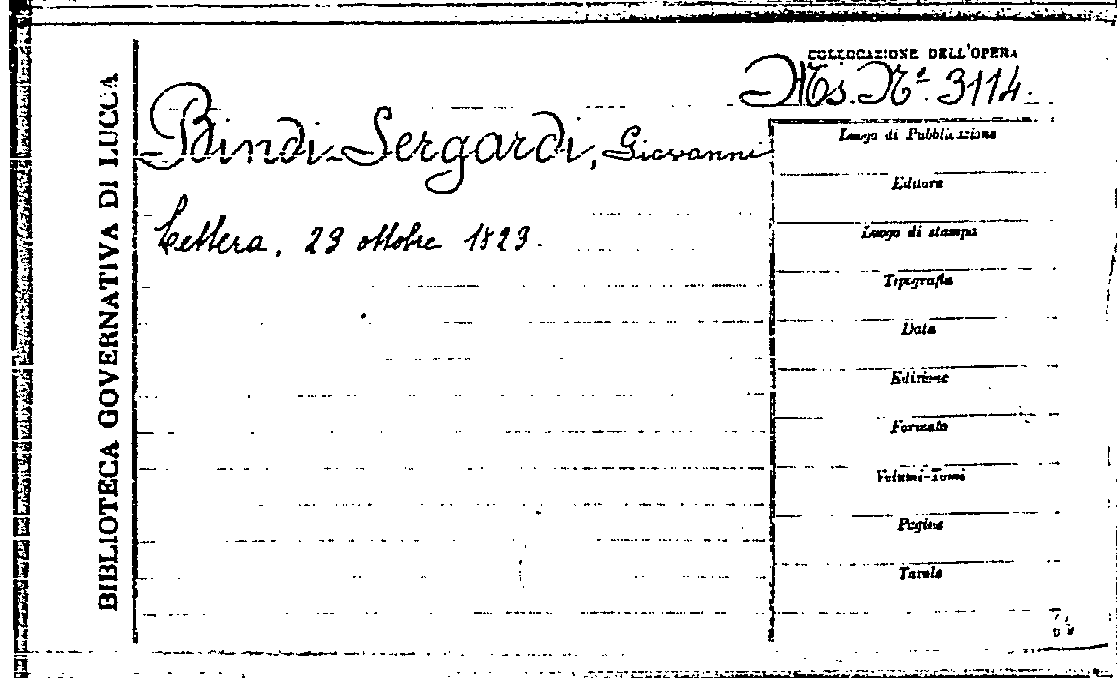 BIBLIOTECA GOVERNATIVA DI LUCCA
COLLOCAZIONE DELL'OPERA
Ms. Nº. 3114.
Bindi-Sergardi, Giovanni
Lettera, 23 ottobre 1823.
Luogo di Pubblicazione
Editore
Luogo di stampa
Tipografia
Data
Edizione
Formato
Volumi-Tomi
Pagine
Tavole